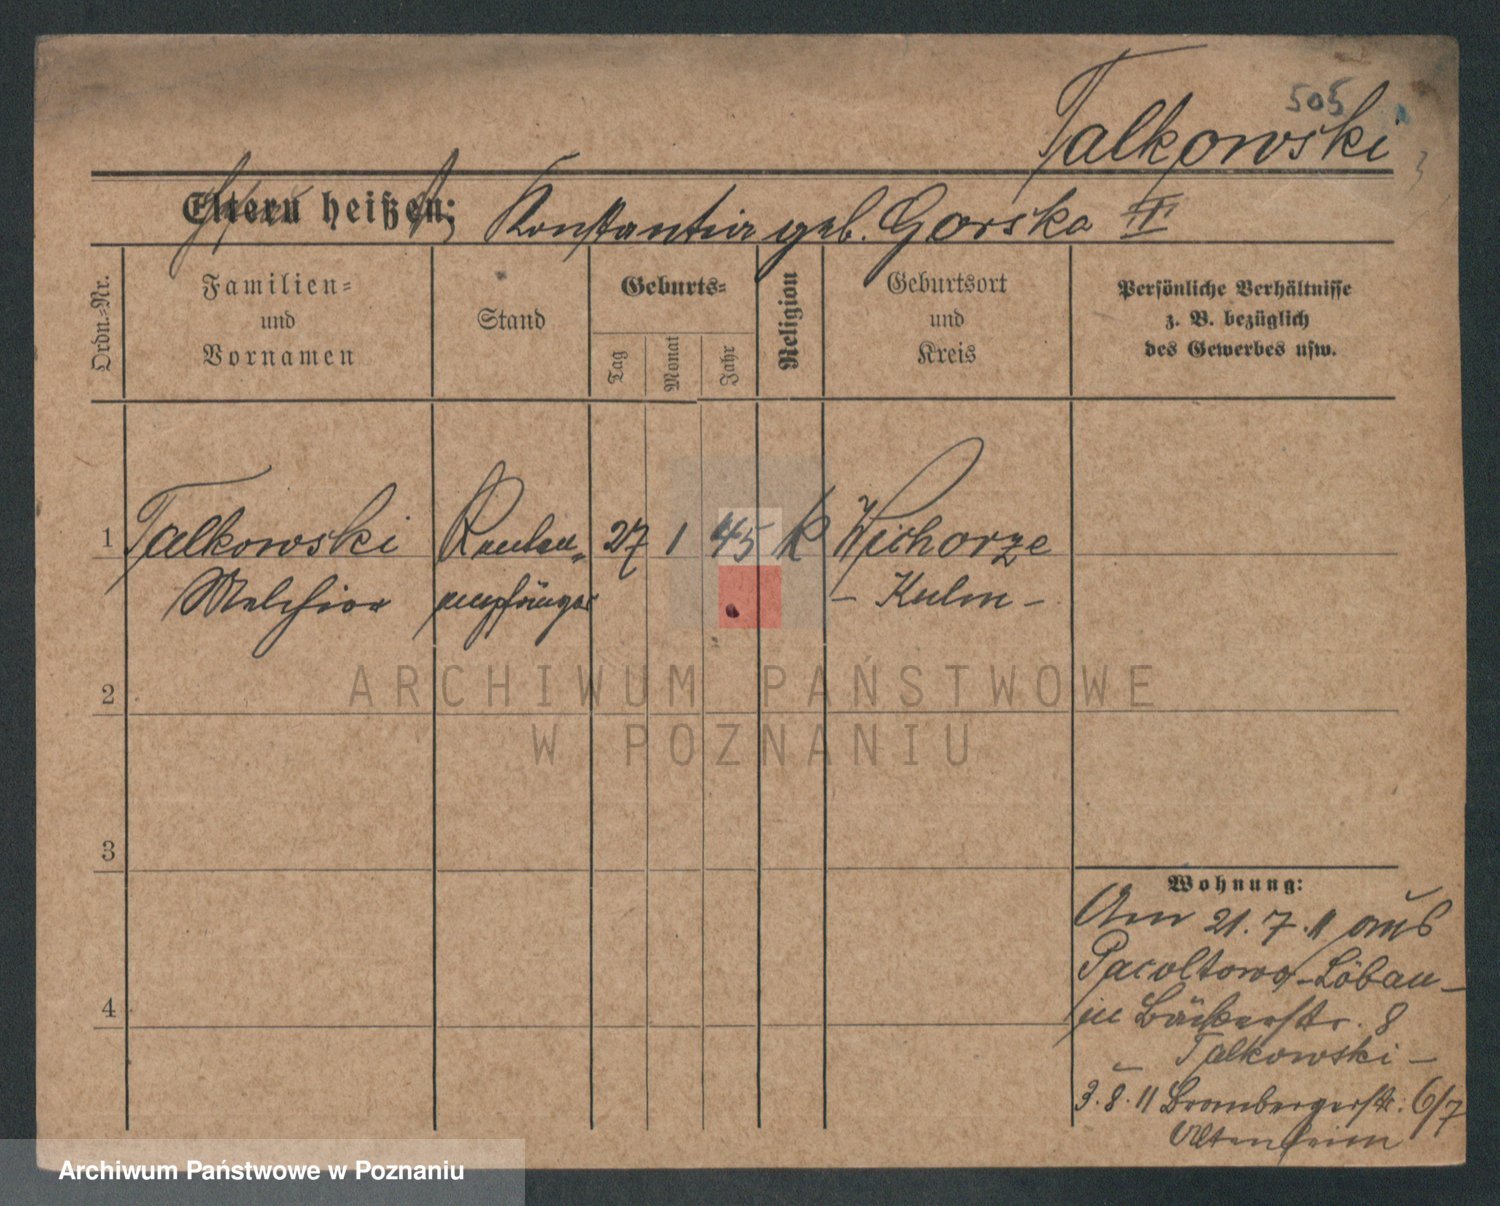 505
Talkowski
Eltern heißen:
Konstantia geb. Gorska II
Ordn.-Nr.
Familien-
und
Vornamen
Stand
Geburts-
Tag
Monat
Jahr
Religion
Geburtsort
und
Kreis
Persönliche Verhältnisse
z. B. bezüglich
des Gewerbes usw.
1 Talkowski Renten- 27 1 45 k Wichorze
Melchior empfänger - Kulm -
2
ARCHIWUM PAŃSTWOWE
W POZNANIU
3
Wohnung:
Am 21.7.11 aus
Pacoltowo-Löbau-
in Bäckerstr. 8
4
- Talkowski -
3.8.11 Brombergerstr. 6/7
Altenheim
Archiwum Państwowe w Poznaniu